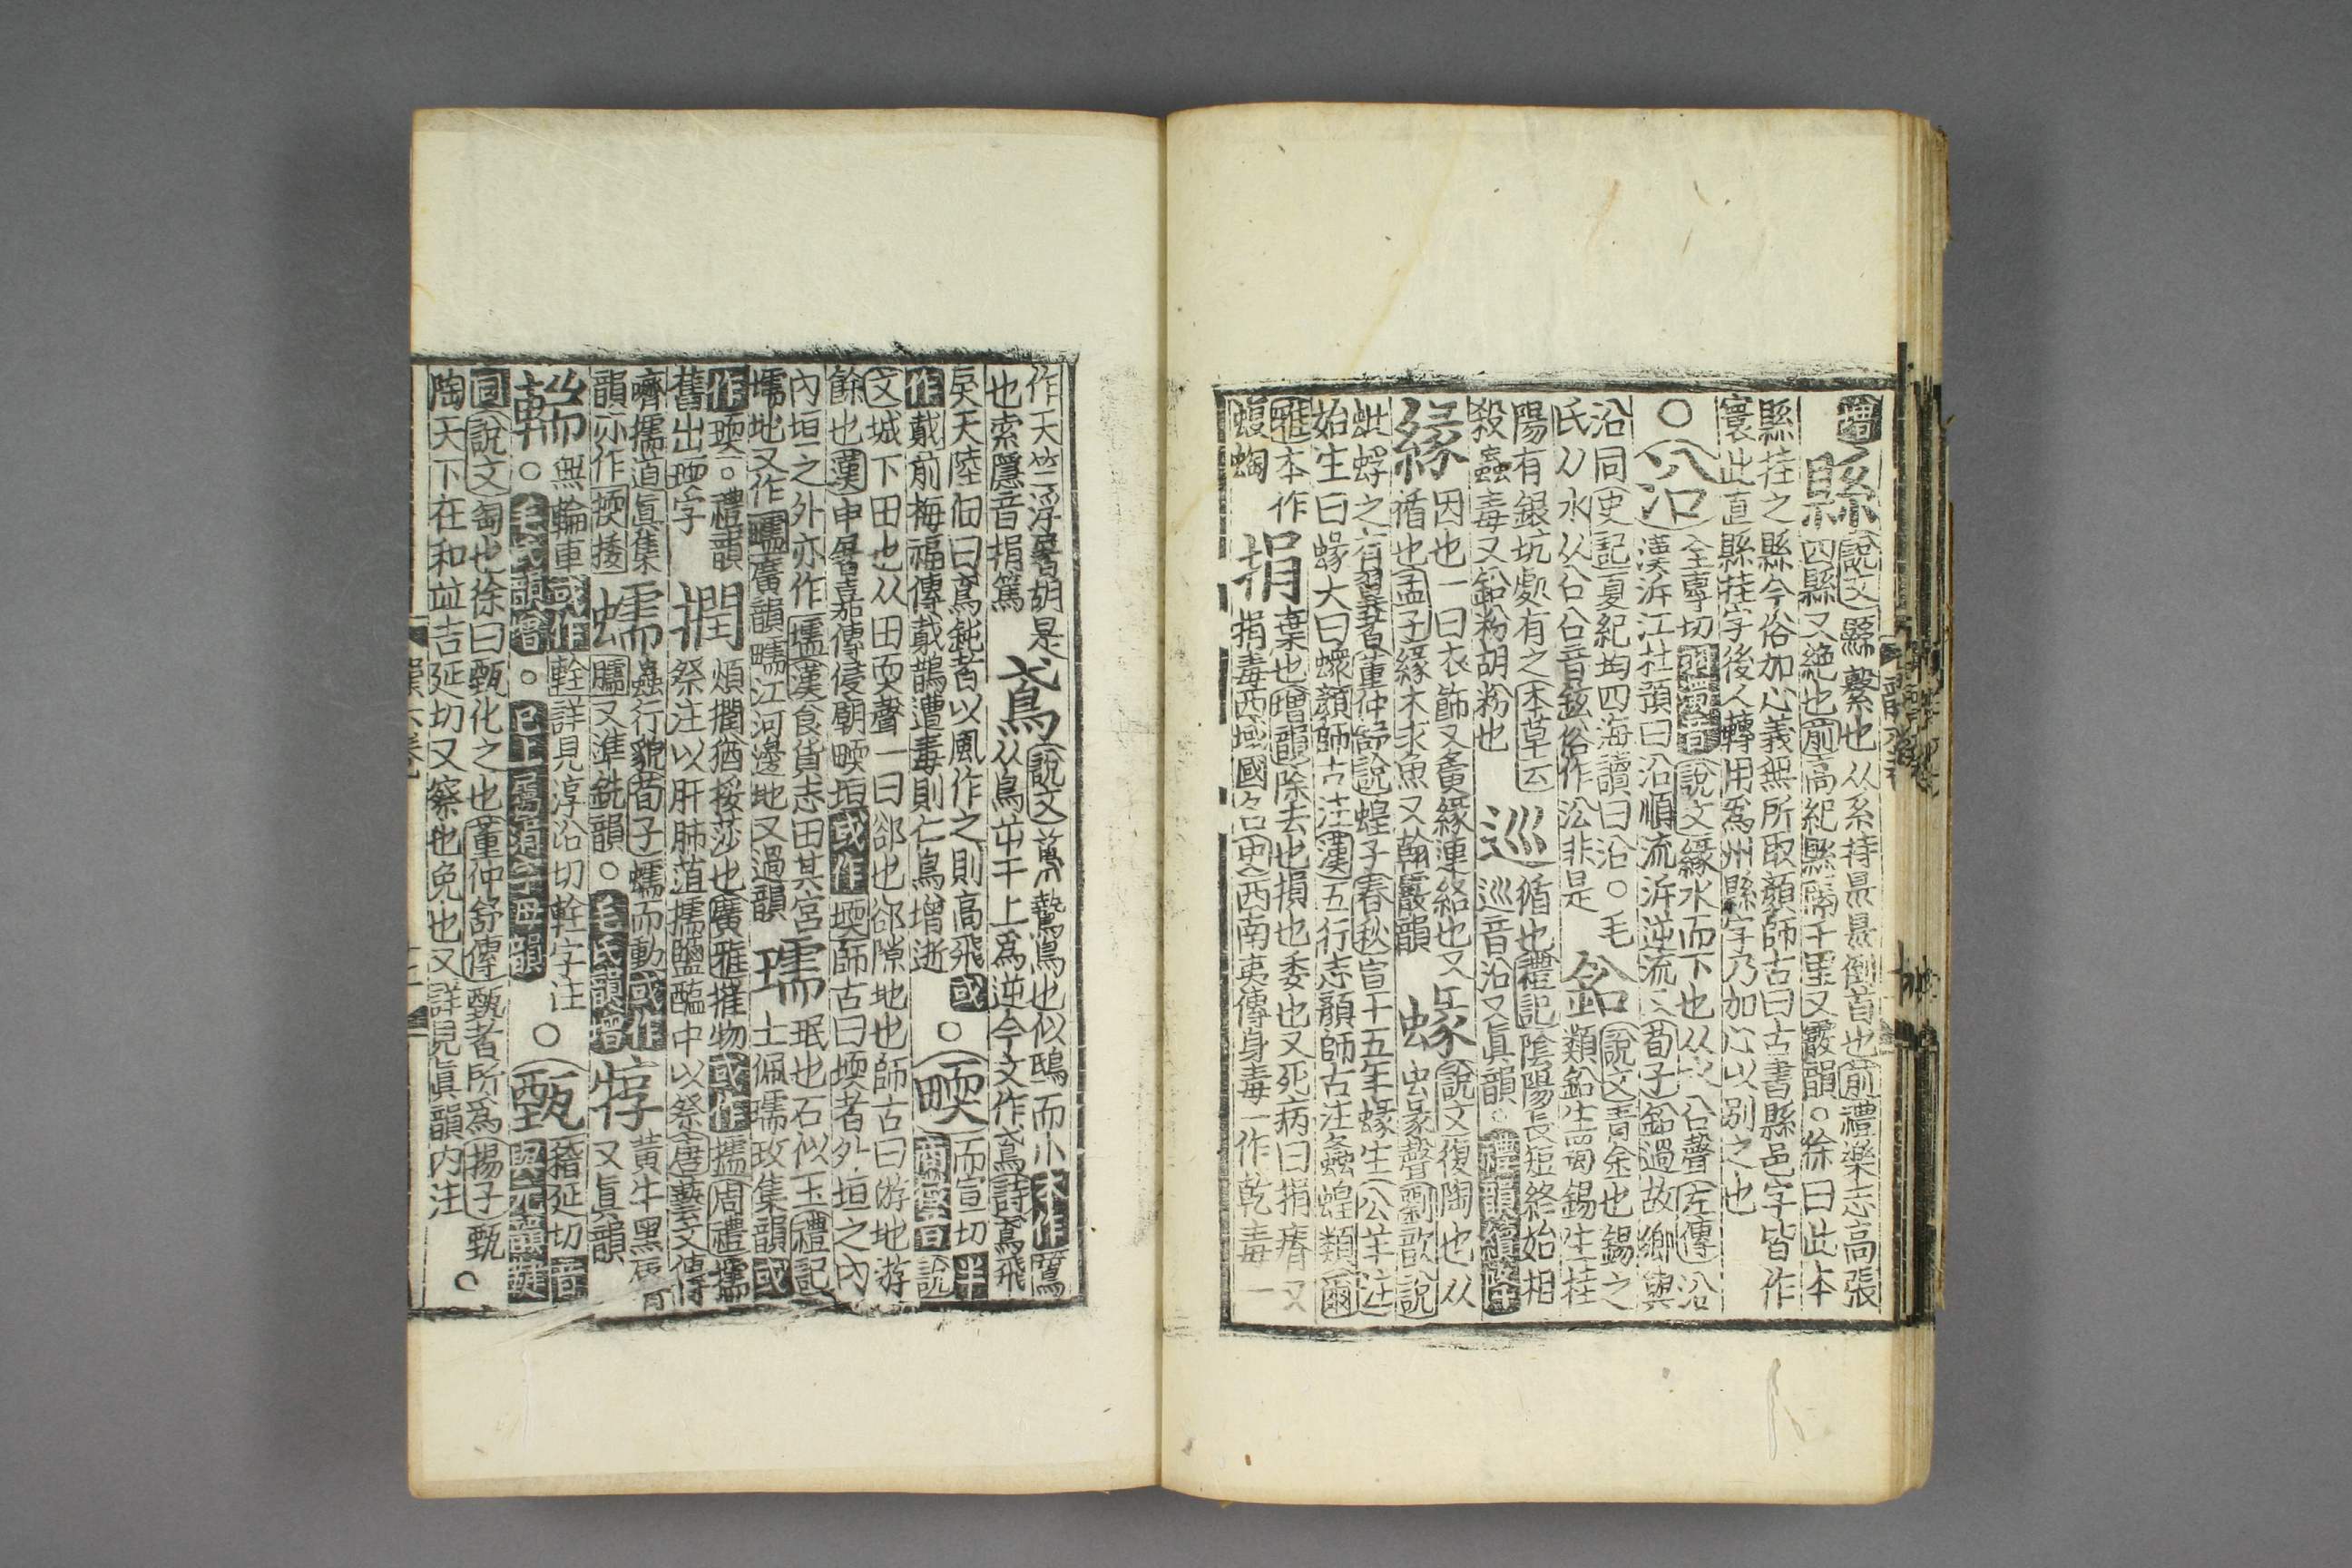 增縣說文繫也从系持𥄉𥄉倒首也前禮樂志高張
四縣又絶也前高紀縣隔千里又霰韻○徐曰此本
縣挂之縣今俗加心義無所取顏師古曰古書縣邑字皆作
寰此直縣挂字後人轉用爲州縣字乃加心以别之也
○沿全專切說文緣水而下也从水㕣聲左傳沿
漢泝江杜預曰沿順流泝逆流荀子鈆過故鄉與
沿同史記夏紀均四海讀曰沿○毛
氏曰水从㕣㕣音鉉俗作㳂非是
鉛說文青金也錫之
類鉛生蜀錫生桂
陽有銀坑處有之本草云
殺蟲毒又鉛粉胡粉也
巡循也禮記陰陽長短終始相
巡巡音沿又眞韻○禮韻續降
緣因也一曰衣飾又夤緣連絡也又
循也孟子緣木求魚又翰霰韻
蝝說文復陶也从
虫彖聲劉歆說
蚍蜉之有翼者董仲舒說蝗子春秋宣十五年蝝生公羊注
始生曰蝝大曰蠓顏師古注漢五行志顏師古注螽蝗類爾
雅本作
蝮蜪
捐棄也增韻除去也損也委也又死病曰捐瘠又
捐毒西域國名史西南夷傳身毒一作乾毒一
作天竺浮屠胡是
也索隱音捐篤
鳶說文鷙鳥也似鴟而小本作鳶
从鳥屰于上爲逆今文作鳶詩鳶飛
戾天陸佃曰鳶鈍者以風作之則高飛或
作䳒前梅福傳䳒鵲遭毒則仁鳥增逝
○堧而宣切半
商徵音說
文城下田也从田耎聲一曰郤也郤隙地也師古曰游地游
餘也漢申屠嘉傳侵廟堧垣或作堧師古曰堧者外垣之內
內垣之外亦作壖漢食貨志田其宮
壖地又作𤲬廣韻𤲬江河邊地又過韻
瓀珉也石似玉禮記
士佩瓀玟集韻或
作瑌○禮韻
舊出瑌字
撋煩撋猶挼莎也廣雅摧物或作擩周禮擩
祭注以肝肺菹擩鹽醢中以祭唐藝文傳
嚌擩道眞集
韻亦作㨎捼
蠕蟲行貌荀子蠕而動或作
臑又準銑韻○毛氏韻增
犉黃牛黑脣
又眞韻
輲無輪車或作輇詳見淳沿切輇字注
○毛氏韻增○已上屬涓字母韻
○甄稽延切音
與元韻犍
同說文匋也徐曰甄化之也董仲舒傳甄者所爲揚子甄
陶天下在和並吉延切又察也免也又詳見眞韻內注○